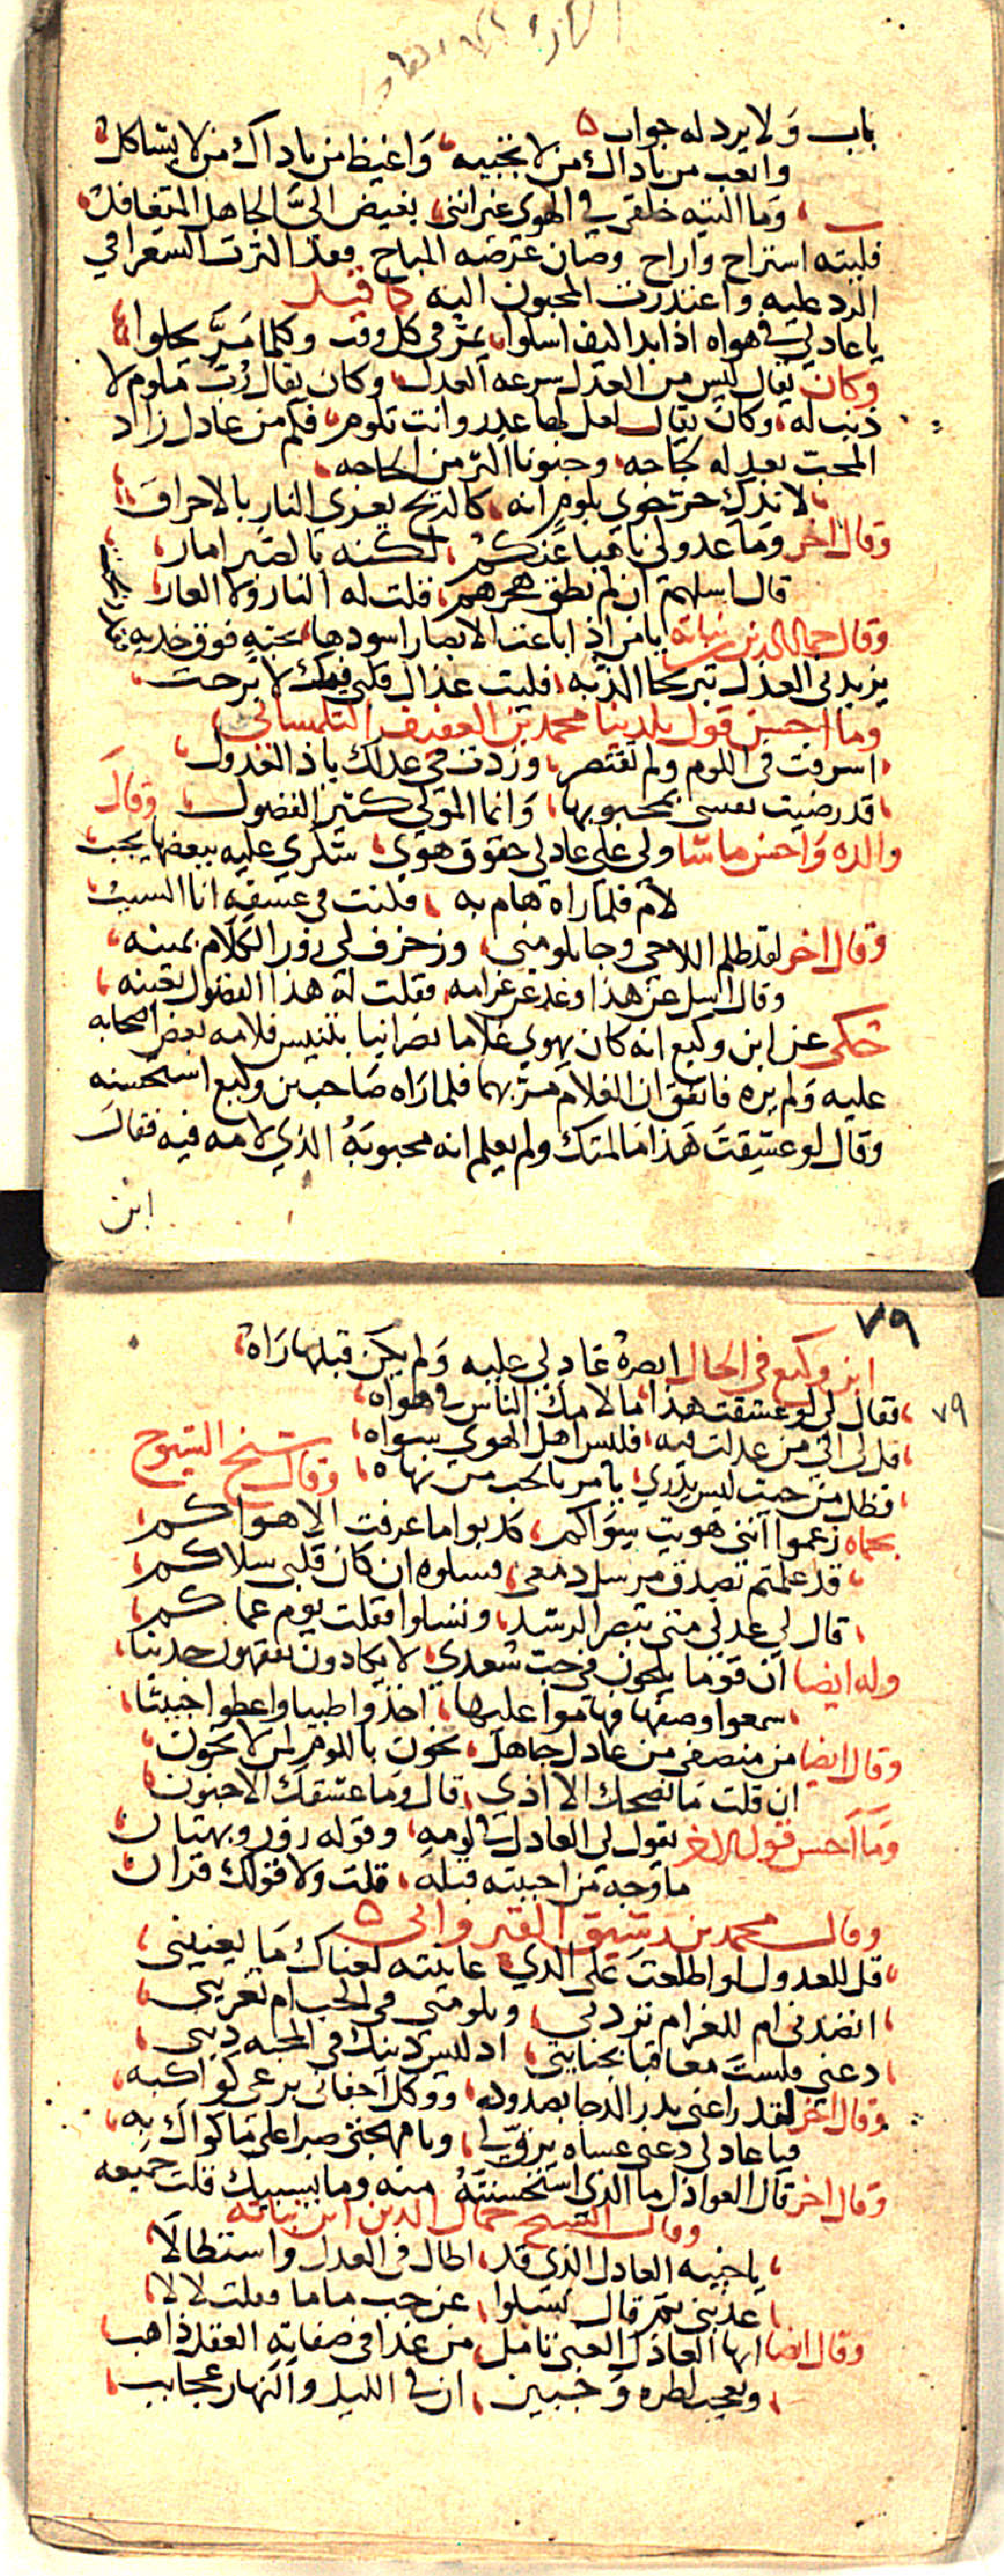 باب ولا يرد له جواب
واتعب من ناداك من لا تجيبه واغيظ من ناداك من لا يشاكل
وما التيه خلقي في الهوى غير انني بغيض الي الجاهل المتغافل
فليته استراح واراح وصان عرضه المباح فقد اكثرت الشعرا في
الرد عليه واعتذرت المحبون اليه كما قيل
يا عاذلي في هواه اذا بدا كيف اسلوا يمر في كل وقت وكلما مر يحلوا
وكان يقال ليس من العدل سرعه العذل وكان يقال رب ملوم لا
ذنب له وكان يقال لعل لها عذر وانت تلوم فكم من عاذل زاد
المحب بعذله لجاجه وجنونا اكثر من الحاجه
لا تدرك حر جوى بلوم انه كالريح يغري النار بالاحراق
وقال اخر وما عذولي ناهيا عنكم لكنه بالصبر امار
قال اسلهم ان لم تطق هجرهم فقلت له النار ولا العار
وقال جمال الدين بن نباته يا من اذا باعت الابصار اسودها بحبة فوق خديه
يزيدني العذل تبريحا الذ به فليت عذال قلبي فيك لا برحت
وما احسن قول بلدينا محمد بن العفيف التلمساني
اسرفت في اللوم ولم تقتصر وزدت في عذلك ياذ العذول
قد رضيت نفسي بمحبوبها وانما المولى كثير الفضول وقال
والده واحسن ما شا ولي على عاذلي حقوق هوى شكري عليه ببعضها يجب
لام فلما راه هام به فكنت في عشقه انا السبب
وقال اخر لقد ظلم اللاحي وجا يلومني وزخرف لي زور الكلام بمينه
وقال اسل عن هذا وعد عن غرامه فقلت له هذا الفضول بعينه
حكى عن ابن وكيع انه كان يهوي غلاما نصرانيا بتنيس فلامه بعض اصحابه
عليه ولم يره فاتفق ان الغلام مر بهما فلما راه صاحب بن وكيع استحسنه
وقال لو عشقت هذا ما لمتك ولم يعلم انه محبوبه الذي لامه فيه فقال
ابن
٧٩
ابن وكيع في الحال ابصره عاذلي عليه ولم يكن قبلها راه
٧٩
فقال لي لو عشقت هذا ما لامك الناس في هواه
قل لي الى من عدلت فيه فليس اهل الهوى سواه
فظل من حيث ليس يدري يامر بالحب من نهاه وقال شيخ الشيوخ
بحماه زعموا انني هويت سواكم كذبوا ما عرفت الا هواكم
قد علمتم بصدق مرسل دمعي فسلوه ان كان قلبي سلاكم
قال لي عذلي متى تبصر الرشد وتسلوا فقلت يوم عماكم
وله ايضا ان قوما يلحون في حب سعدي لا يكادون يفقهون حديثا
سمعوا وصفها ولاموا عليها اخذوا طيبا واعطوا خبيثا
وقال ايضا من منصفي من عاذل جاهل يخون باللوم لمن لا يخون
ان قلت ما نصحك الا اذى قال وما عشقك الا جنون
وما احسن قول الاخر يقول لي العاذل في لومه وقوله زور وبهتان
ما وجه من احببته قبله قلت ولا قولك قران
وقال محمد بن رشيق القيرواني
قل للعذول لو اطلعت على الذي عانيته لعناك ما يعنيني
اتصدني ام للغرام تردني وتلومني في الحب ام تغريني
دعني فلست معاقبا بجنايتي اذ ليس دينك في المحبه ديني
وقال اخر لقد راعني بدر الدجا بصدوده ووكل اجفاني برعي كواكبه
فيا عاذلي دعني عساه يرق لي ويا مهجتي صبرا على ما كواك به
وقال اخر قال العواذل ما الذي استحسنته منه وما يسبيك قلت جميعه
وقال الشيخ جمال الدين ابن نباته
يا حبيه العاذل الذي قد اطال في العذل واستطالا
عذبني ثم قال تسلوا عن حب ماما وقلت لا لا
وقال ايضا ايها العاذل الغبي تامل من غدا في صفاته العقل ذاهب
وتعجب لطره وجبين ان في الليل والنهار عجايب